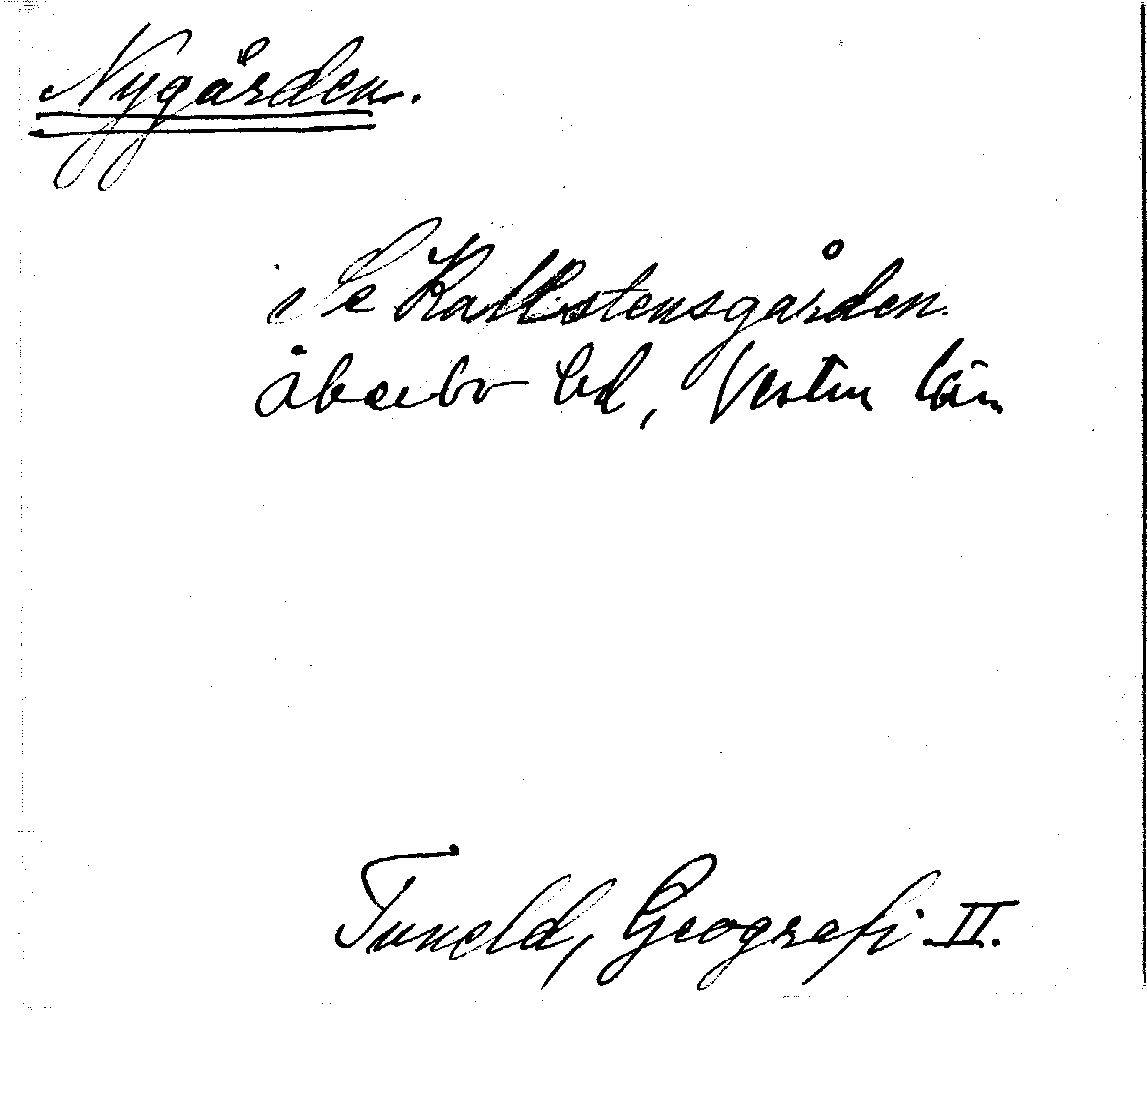 Nygården.
Se Kallstensgården.
Åkerbo hd, Vestm län
Tuneld, Geografi II.